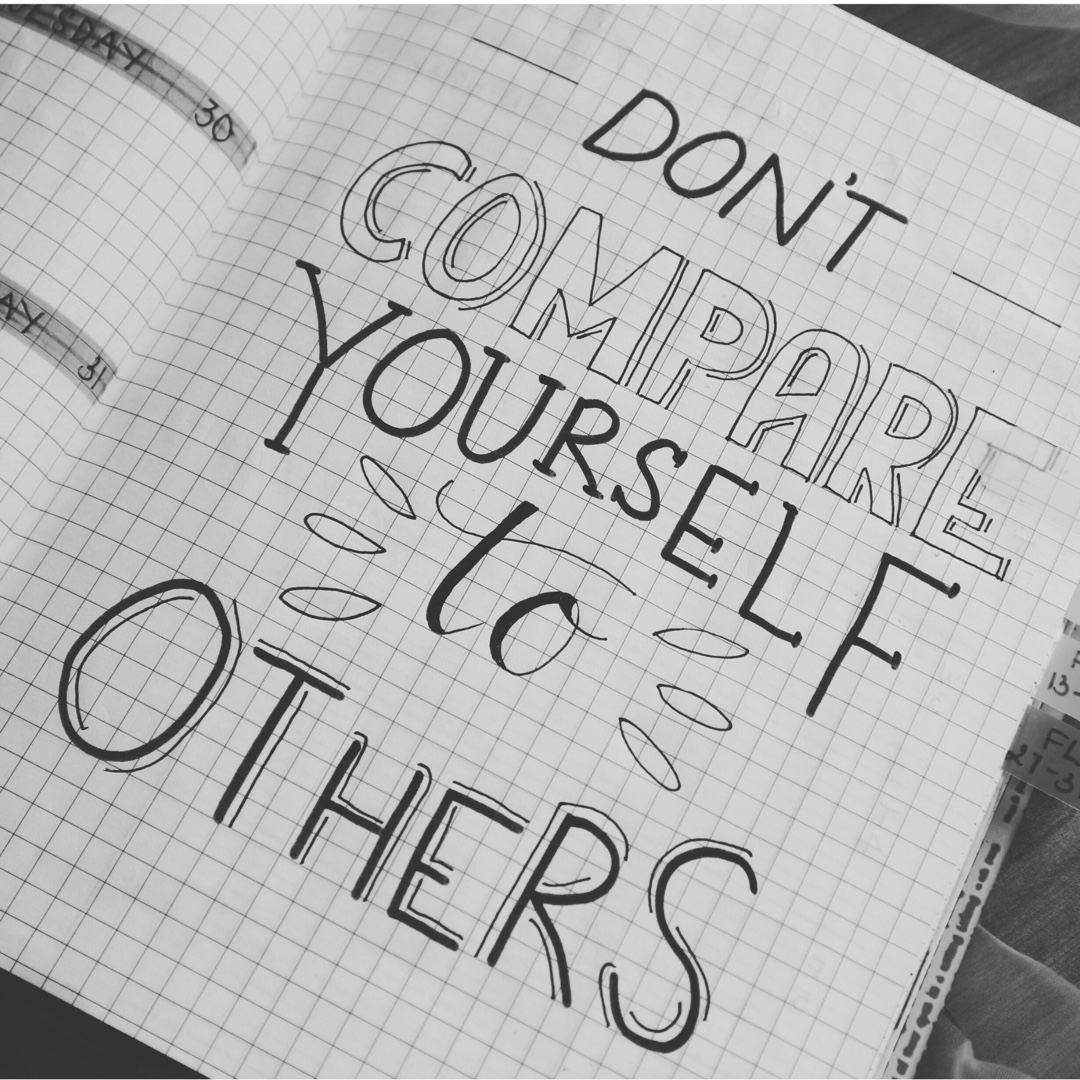 30
31
DON'T
COMPARE
YOURSELF
to
OTHERS
13-
FL
21-3